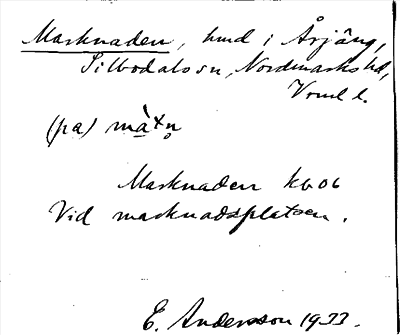 Marknaden, hmd i Årjäng,
Silbodals sn, Nordmarks hd,
Vrml l.
(pa) màxn̥
Marknaden kbob
Vid marknadsplatsen.
E. Andersson 1933.